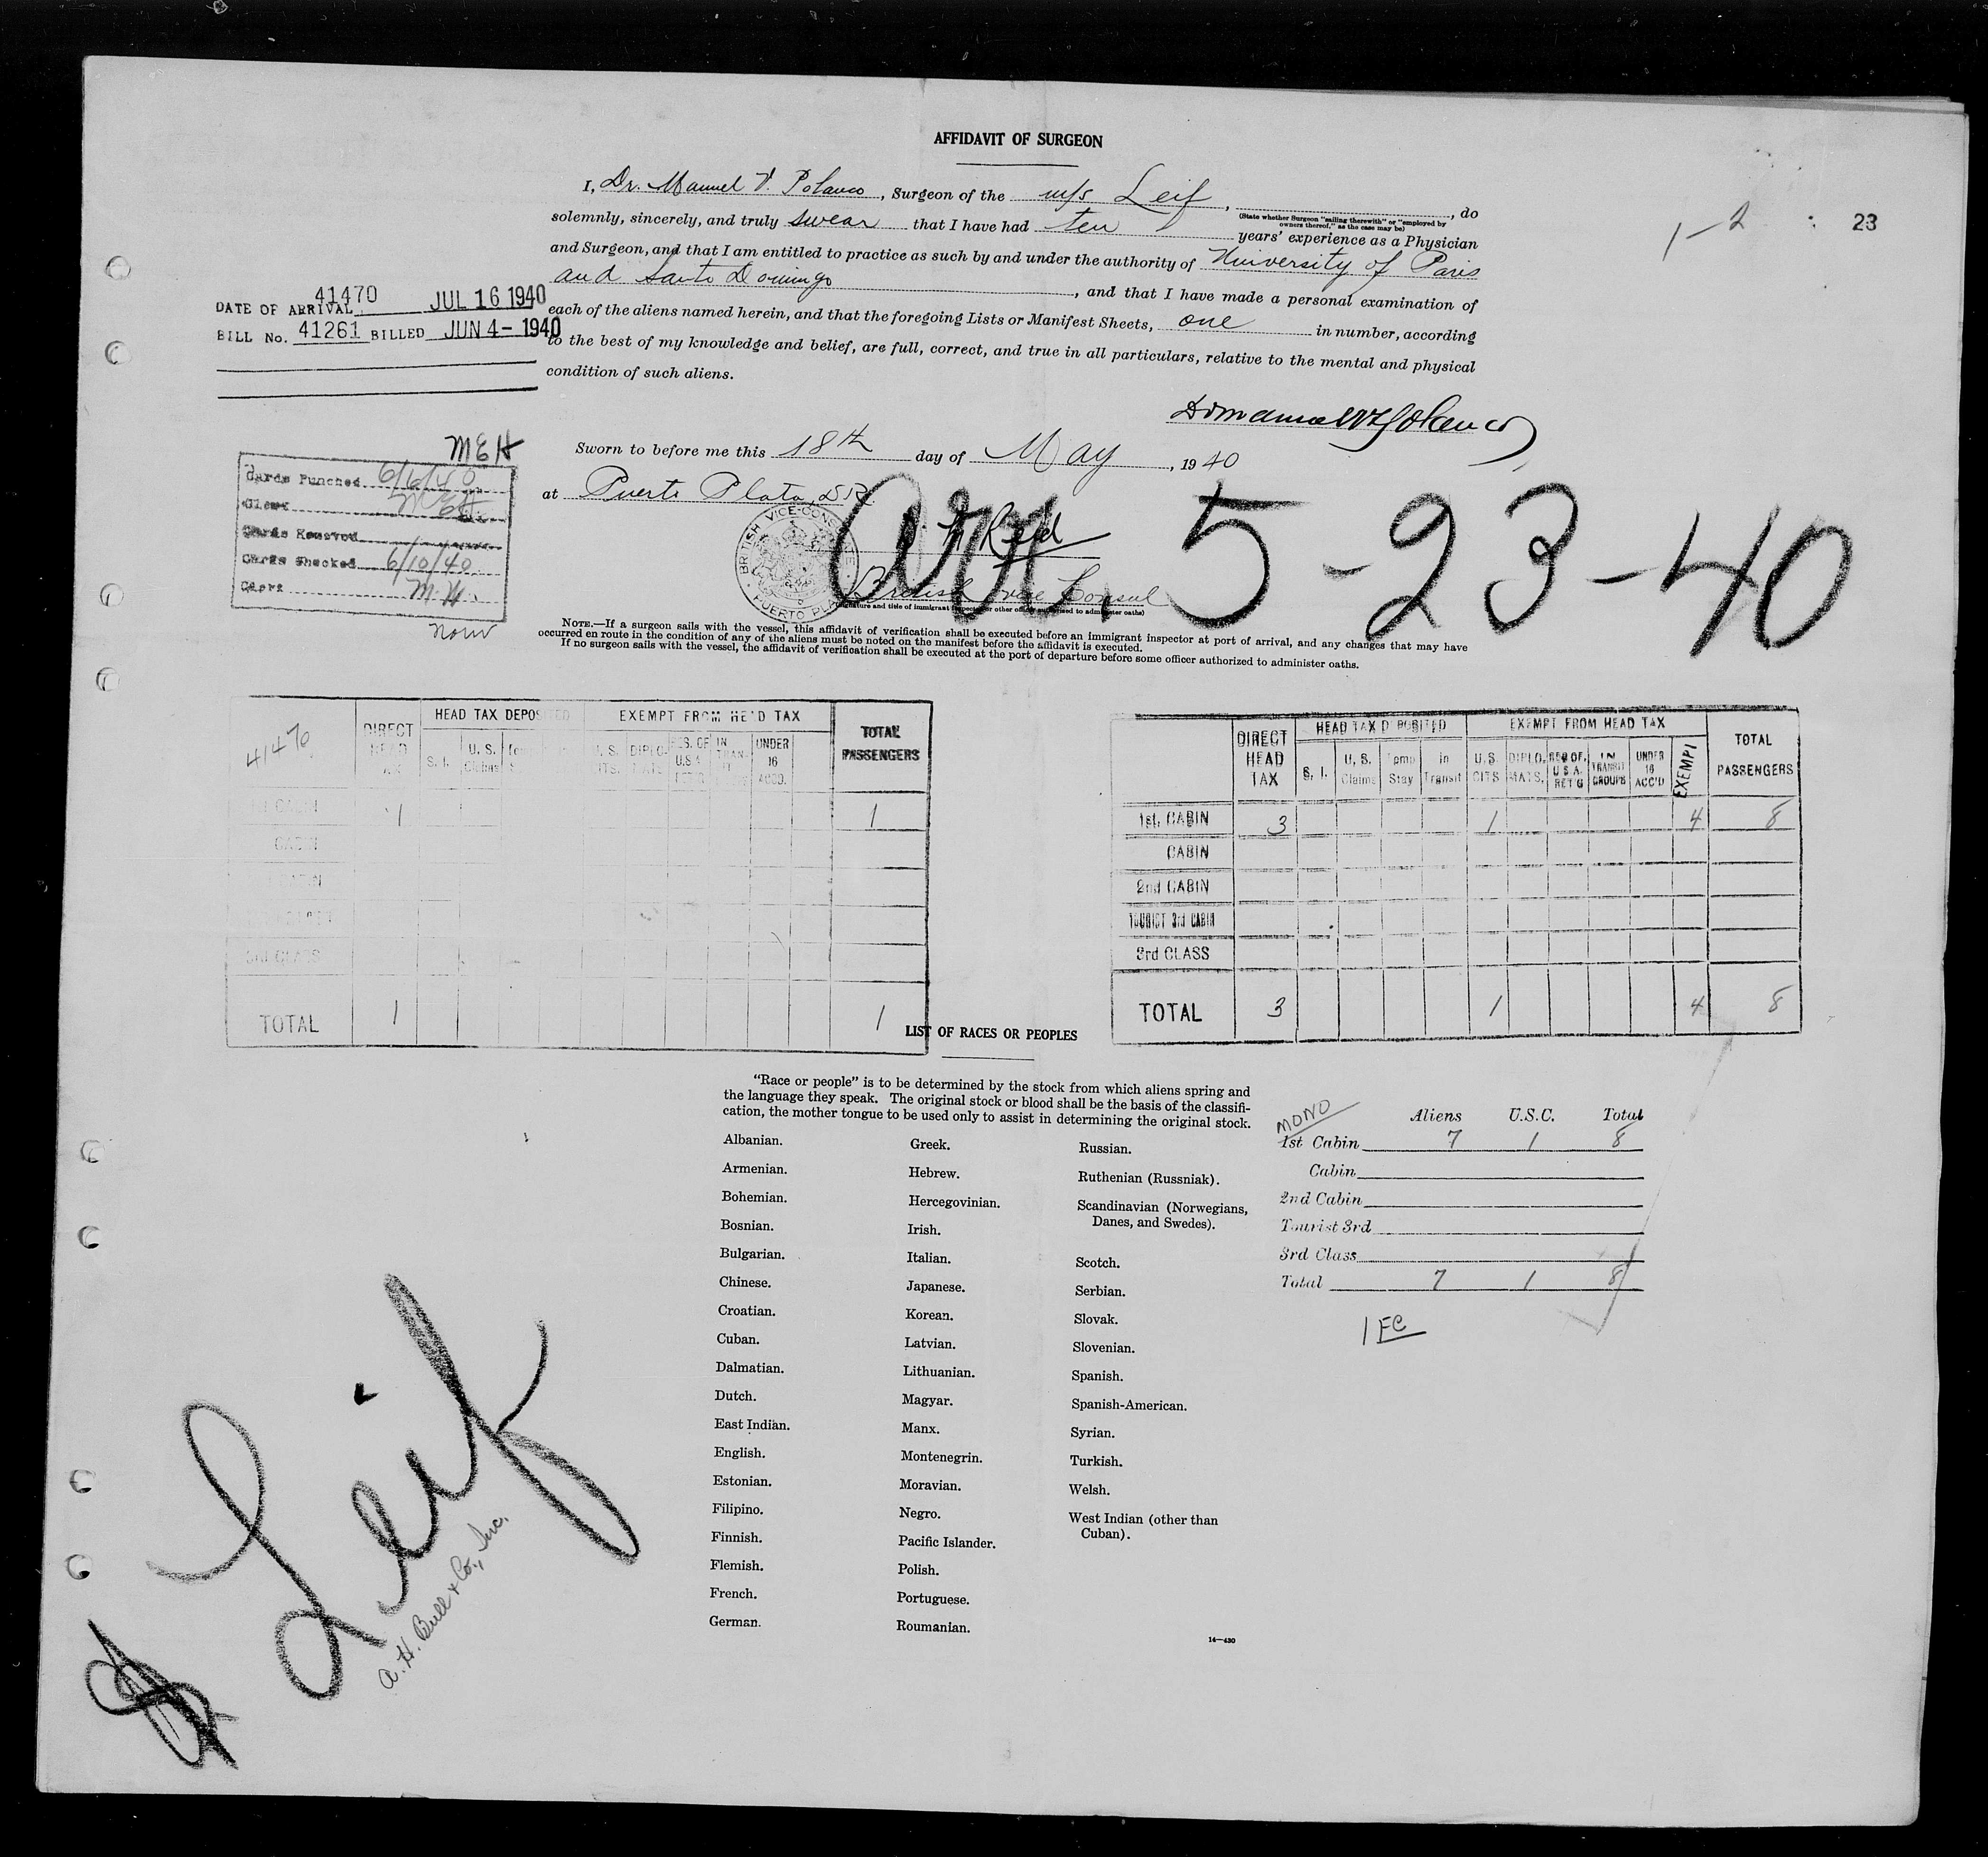 AFFIDAVIT OF SURGEON
I, Dr. Manuel V. Polanco, Surgeon of the m/s Leif, , do
(State whether Surgeon "sailing therewith" or "employed by owners thereof," as the case may be)
solemnly, sincerely, and truly swear that I have had ten years' experience as a Physician
and Surgeon, and that I am entitled to practice as such by and under the authority of University of Paris
and Santo Domingo, and that I have made a personal examination of
each of the aliens named herein, and that the foregoing Lists or Manifest Sheets, one in number, according
to the best of my knowledge and belief, are full, correct, and true in all particulars, relative to the mental and physical
condition of such aliens.
1-2 23
41470
DATE OF ARRIVAL JUL 16 1940
BILL No. 41261 BILLED JUN 4 - 1940
Sworn to before me this 18th day of May, 1940
at Puerto Plata, D.R.
MEH
Cards Punched 6/6/40
Clerk MEH
Cards Removed
Cards Checked 6/10/40
Clerk M.H.
BRITISH VICE-CONSULATE
PUERTO PLATA
Reid
British Vice Consul
(Signature and title of immigrant inspector or other officer authorized to administer oaths)
Arr. 5-23-40
NOTE.—If a surgeon sails with the vessel, this affidavit of verification shall be executed before an immigrant inspector at port of arrival, and any changes that may have
occurred en route in the condition of any of the aliens must be noted on the manifest before the affidavit is executed.
If no surgeon sails with the vessel, the affidavit of verification shall be executed at the port of departure before some officer authorized to administer oaths.
41470
DIRECT HEAD TAX
HEAD TAX DEPOSITED
EXEMPT FROM HEAD TAX
TOTAL PASSENGERS
S. I. U. S. Claims
U. S. CITS. DIPLO. MATS. RES. OF U.S.A. RET'G IN TRANSIT GROUPS UNDER 16 ACCO.
1st CABIN 1 1
CABIN
2nd CABIN
3rd CLASS
TOTAL 1 1
DIRECT HEAD TAX
HEAD TAX DEPOSITED
EXEMPT FROM HEAD TAX
TOTAL PASSENGERS
S. I. U. S. Claims Temp Stay In Transit U.S. CITS DIPLO. MATS. RES OF. U S A. RET'G IN TRANSIT GROUPS UNDER 16 ACC'D EXEMPT
1st. CABIN 3 1 4 8
CABIN
2nd CABIN
TOURIST 3rd CABIN
3rd CLASS
TOTAL 3 1 4 8
LIST OF RACES OR PEOPLES
"Race or people" is to be determined by the stock from which aliens spring and
the language they speak. The original stock or blood shall be the basis of the classifi-
cation, the mother tongue to be used only to assist in determining the original stock.
Albanian.
Armenian.
Bohemian.
Bosnian.
Bulgarian.
Chinese.
Croatian.
Cuban.
Dalmatian.
Dutch.
East Indian.
English.
Estonian.
Filipino.
Finnish.
Flemish.
French.
German.
Greek.
Hebrew.
Hercegovinian.
Irish.
Italian.
Japanese.
Korean.
Latvian.
Lithuanian.
Magyar.
Manx.
Montenegrin.
Moravian.
Negro.
Pacific Islander.
Polish.
Portuguese.
Roumanian.
Russian.
Ruthenian (Russniak).
Scandinavian (Norwegians,
Danes, and Swedes).
Scotch.
Serbian.
Slovak.
Slovenian.
Spanish.
Spanish-American.
Syrian.
Turkish.
Welsh.
West Indian (other than
Cuban).
14—430
MONO
Aliens U.S.C. Total
1st Cabin 7 1 8
Cabin
2nd Cabin
Tourist 3rd
3rd Class
Total 7 1 8
1 FC
Leif
A. H. Bull & Co., Inc.